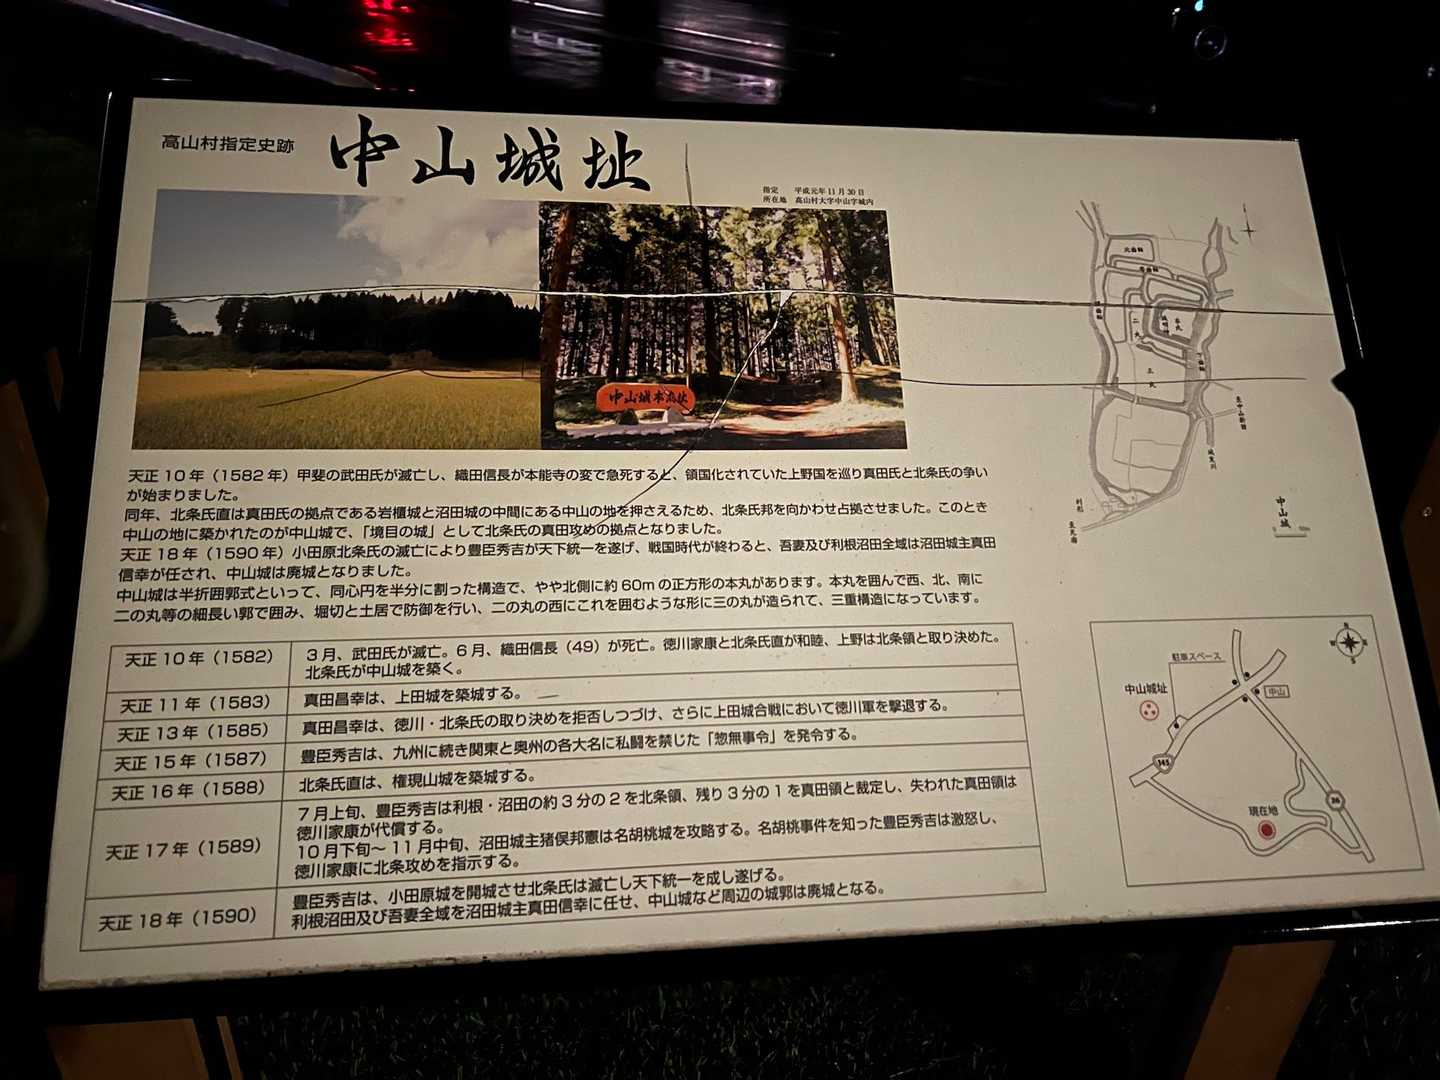 高山村指定史跡
中山城址
指定 平成元年11月30日
所在地 高山村大字中山字城内
中山城本丸址
天正10年（1582年）甲斐の武田氏が滅亡し、織田信長が本能寺の変で急死すると、領国化されていた上野国を巡り真田氏と北条氏の争い
が始まりました。
同年、北条氏直は真田氏の拠点である岩櫃城と沼田城の中間にある中山の地を押さえるため、北条氏邦を向かわせ占拠させました。このとき
中山の地に築かれたのが中山城で、「境目の城」として北条氏の真田攻めの拠点となりました。
天正18年（1590年）小田原北条氏の滅亡により豊臣秀吉が天下統一を遂げ、戦国時代が終わると、吾妻及び利根沼田全域は沼田城主真田
信幸が任され、中山城は廃城となりました。
中山城は半折囲郭式といって、同心円を半分に割った構造で、やや北側に約60mの正方形の本丸があります。本丸を囲んで西、北、南に
二の丸等の細長い郭で囲み、堀切と土居で防御を行い、二の丸の西にこれを囲むような形に三の丸が造られて、三重構造になっています。
天正10年（1582）
3月、武田氏が滅亡。6月、織田信長（49）が死亡。徳川家康と北条氏直が和睦、上野は北条領と取り決めた。
北条氏が中山城を築く。
天正11年（1583）
真田昌幸は、上田城を築城する。
天正13年（1585）
真田昌幸は、徳川・北条氏の取り決めを拒否しつづけ、さらに上田城合戦において徳川軍を撃退する。
天正15年（1587）
豊臣秀吉は、九州に続き関東と奥州の各大名に私闘を禁じた「惣無事令」を発令する。
天正16年（1588）
北条氏直は、権現山城を築城する。
天正17年（1589）
7月上旬、豊臣秀吉は利根・沼田の約3分の2を北条領、残り3分の1を真田領と裁定し、失われた真田領は
徳川家康が代償する。
10月下旬～11月中旬、沼田城主猪俣邦憲は名胡桃城を攻略する。名胡桃事件を知った豊臣秀吉は激怒し、
徳川家康に北条攻めを指示する。
天正18年（1590）
豊臣秀吉は、小田原城を開城させ北条氏は滅亡し天下統一を成し遂げる。
利根沼田及び吾妻全域を沼田城主真田信幸に任せ、中山城など周辺の城郭は廃城となる。
北曲輪
本丸
二丸
三丸
至中山新田
中山城
N
W
E
S
駐車スペース
中山城址
中山
145
36
現在地